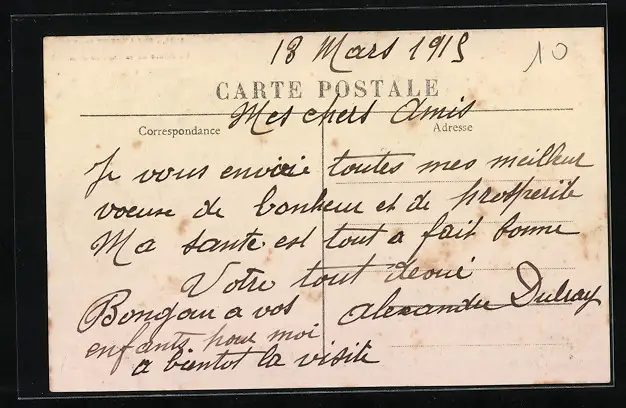 18 Mars 1915
10
CARTE POSTALE
Mes chers Amis
Correspondance
Adresse
Je vous envoie toutes mes meilleur
voeuse de bonheur et de prosperite
Ma sante est tout a fait bonne
Votre tout devoué
Bongour a vos
enfants pour moi
Alexandre Dulray
a bientot la visite